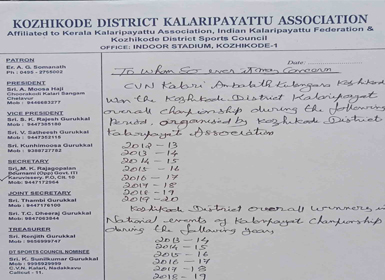 KOZHIKODE DISTRICT KALARIPAYATTU ASSOCIATION
Affiliated to Kerala Kalaripayattu Association, Indian Kalaripayattu Federation &
Kozhikode District Sports Council
OFFICE: INDOOR STADIUM, KOZHIKODE-1
PATRON
Er. A. G. Somanath
Ph : 0495 - 2756002
PRESIDENT
Sri. A. Moosa Haji
Choorakodi Kalari Sangam
Chelavur
Mob : 9446683277
VICE PRESIDENT
Sri. S. K. Rajesh Gurukkal
Mob : 9447385180
Sri. V. Satheesh Gurukkal
Mob : 9447302118
Sri. Kunhimoosa Gurukkal
Mob : 9388727782
SECRETARY
Sri. M. K. Rajagopalan
Beumani (Opp) Govt. ITI
Karuvissery, P.O, Clt. 10
Mob : 9447172564
JOINT SECRETARY
Sri. Thambi Gurukkal
Mob : 9447417100
Sri. T.C. Dheeraj Gurukkal
Mob : 9847083844
TREASURER
Sri. Renjith Gurukkal
Mob : 9656999747
DT SPORTS COUNCIL NOMINEE
Sri. K. Sunilkumar Gurukkal
Mob : 9995929999
C.V.N. Kalari, Nadakkavu
Calicut - 11.
Date:
To Whom So ever it may Concern
CVN Kalari, Kozhikode
was the Kozhikode District Kalaripayat
overall championship during the following
Period, organised by Kozhikode District
Kalaripayat Association
2012 - 13
2013 - 14
2014 - 15
2015 - 16
2016 - 17
2017 - 18
2018 - 19
2019 - 20
Kozhikode District overall winners in
National events of Kalaripayat Championship
during the following years
2013 - 14
2014 - 15
2015 - 16
2016 - 17
2017 - 18
2018 - 19